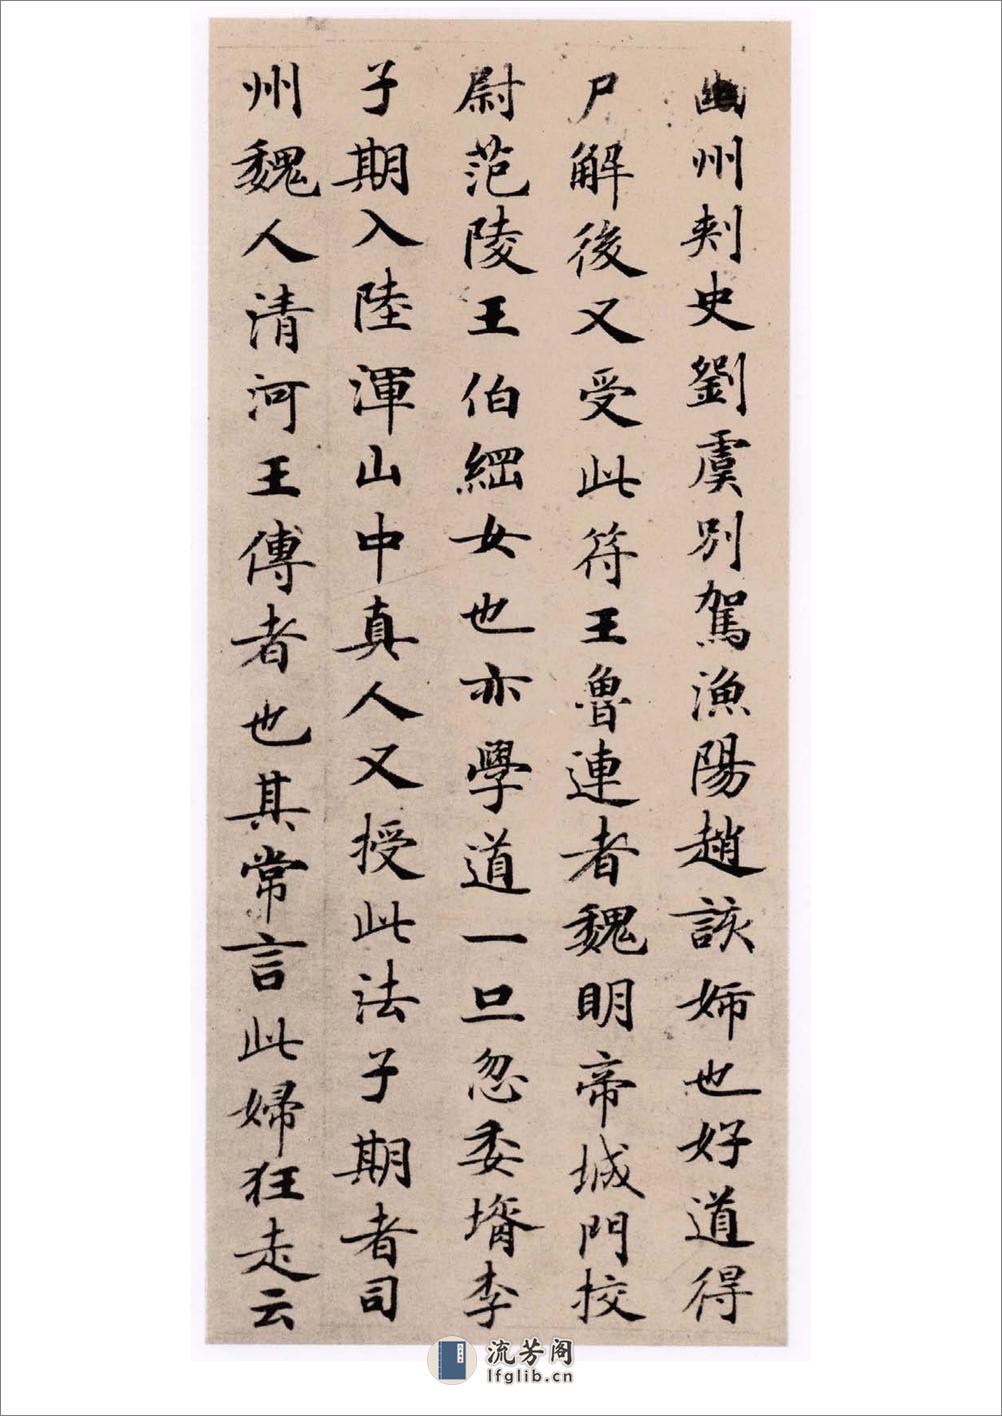 幽州刾史劉虞別駕漁陽趙該姉也好道得
尸解後又受此符王魯連者魏明帝城門挍
尉范陵王伯綱女也亦學道一旦忽委壻李
子期入陸渾山中真人又授此法子期者司
州魏人清河王傅者也其常言此婦狂走云
流芳阁
lfglib.cn